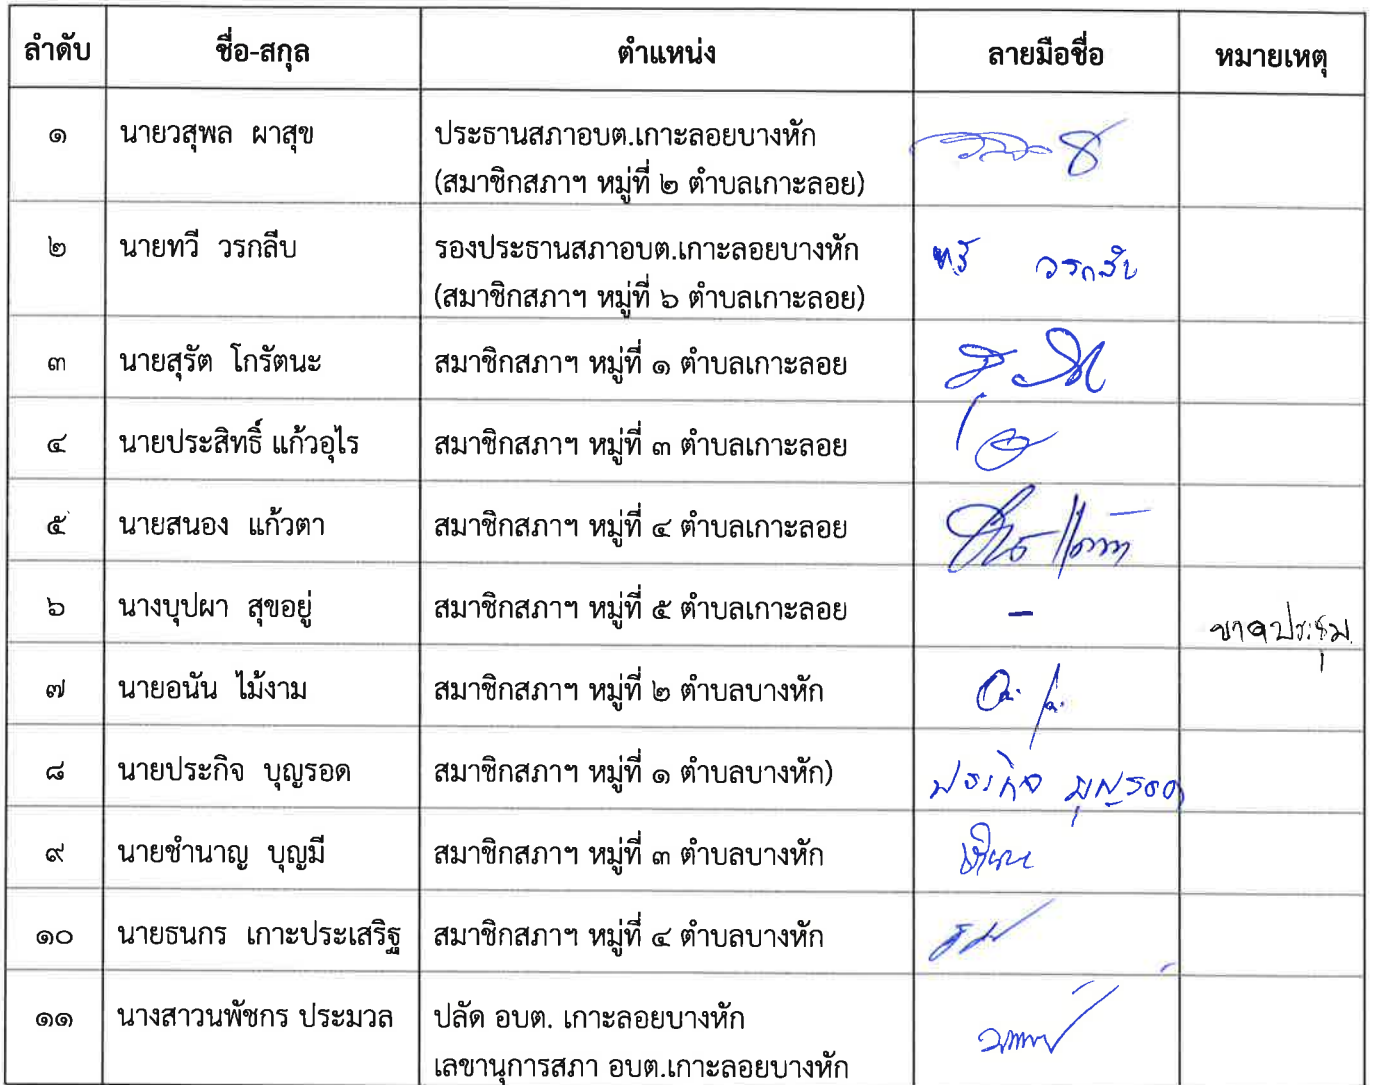 ลำดับ ชื่อ-สกุล ตำแหน่ง ลายมือชื่อ หมายเหตุ
๑ นายวสุพล ผาสุข ประธานสภาอบต.เกาะลอยบางหัก
(สมาชิกสภาฯ หมู่ที่ ๒ ตำบลเกาะลอย)
๒ นายทวี วรกลีบ รองประธานสภาอบต.เกาะลอยบางหัก ทวี วรกลีบ
(สมาชิกสภาฯ หมู่ที่ ๖ ตำบลเกาะลอย)
๓ นายสุรัต โกรัตนะ สมาชิกสภาฯ หมู่ที่ ๑ ตำบลเกาะลอย
๔ นายประสิทธิ์ แก้วอุไร สมาชิกสภาฯ หมู่ที่ ๓ ตำบลเกาะลอย
๕ นายสนอง แก้วตา สมาชิกสภาฯ หมู่ที่ ๔ ตำบลเกาะลอย
๖ นางบุปผา สุขอยู่ สมาชิกสภาฯ หมู่ที่ ๕ ตำบลเกาะลอย - ขาดประชุม
๗ นายอนัน ไม้งาม สมาชิกสภาฯ หมู่ที่ ๒ ตำบลบางหัก
๘ นายประกิจ บุญรอด สมาชิกสภาฯ หมู่ที่ ๑ ตำบลบางหัก) ประกิจ บุญรอด
๙ นายชำนาญ บุญมี สมาชิกสภาฯ หมู่ที่ ๓ ตำบลบางหัก
๑๐ นายธนกร เกาะประเสริฐ สมาชิกสภาฯ หมู่ที่ ๔ ตำบลบางหัก
๑๑ นางสาวนพัชกร ประมวล ปลัด อบต. เกาะลอยบางหัก
เลขานุการสภา อบต.เกาะลอยบางหัก